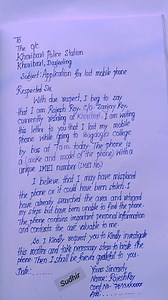 To
The O/c
Khoribari Police Station
Khoribari, Darjeeling
Subject: Application for lost mobile phone
Respected Sir,
With due respect, I beg to say
that I am Rajesh Roy, C/o Sanjay Roy,
currently residing at Khoribari. I am writing
this letter to you that I lost my mobile
phone while going to college
by bus at 7am today. The phone is
a (make and model of the phone) with a
unique IMEI number (IMEI No)
I believe that I may have misplaced
the phone or it could have been stolen. I
have already searched the area and retraced
my steps but have been unable to find the phone.
The phone contains important personal information
and contacts that are valuable to me.
So, I kindly request you to kindly investigate
this matter and take necessary steps to locate the
phone. Then I shall be forever grateful to you.
Date:
Yours Sincerely
Name: Rajesh Roy
Sudhir